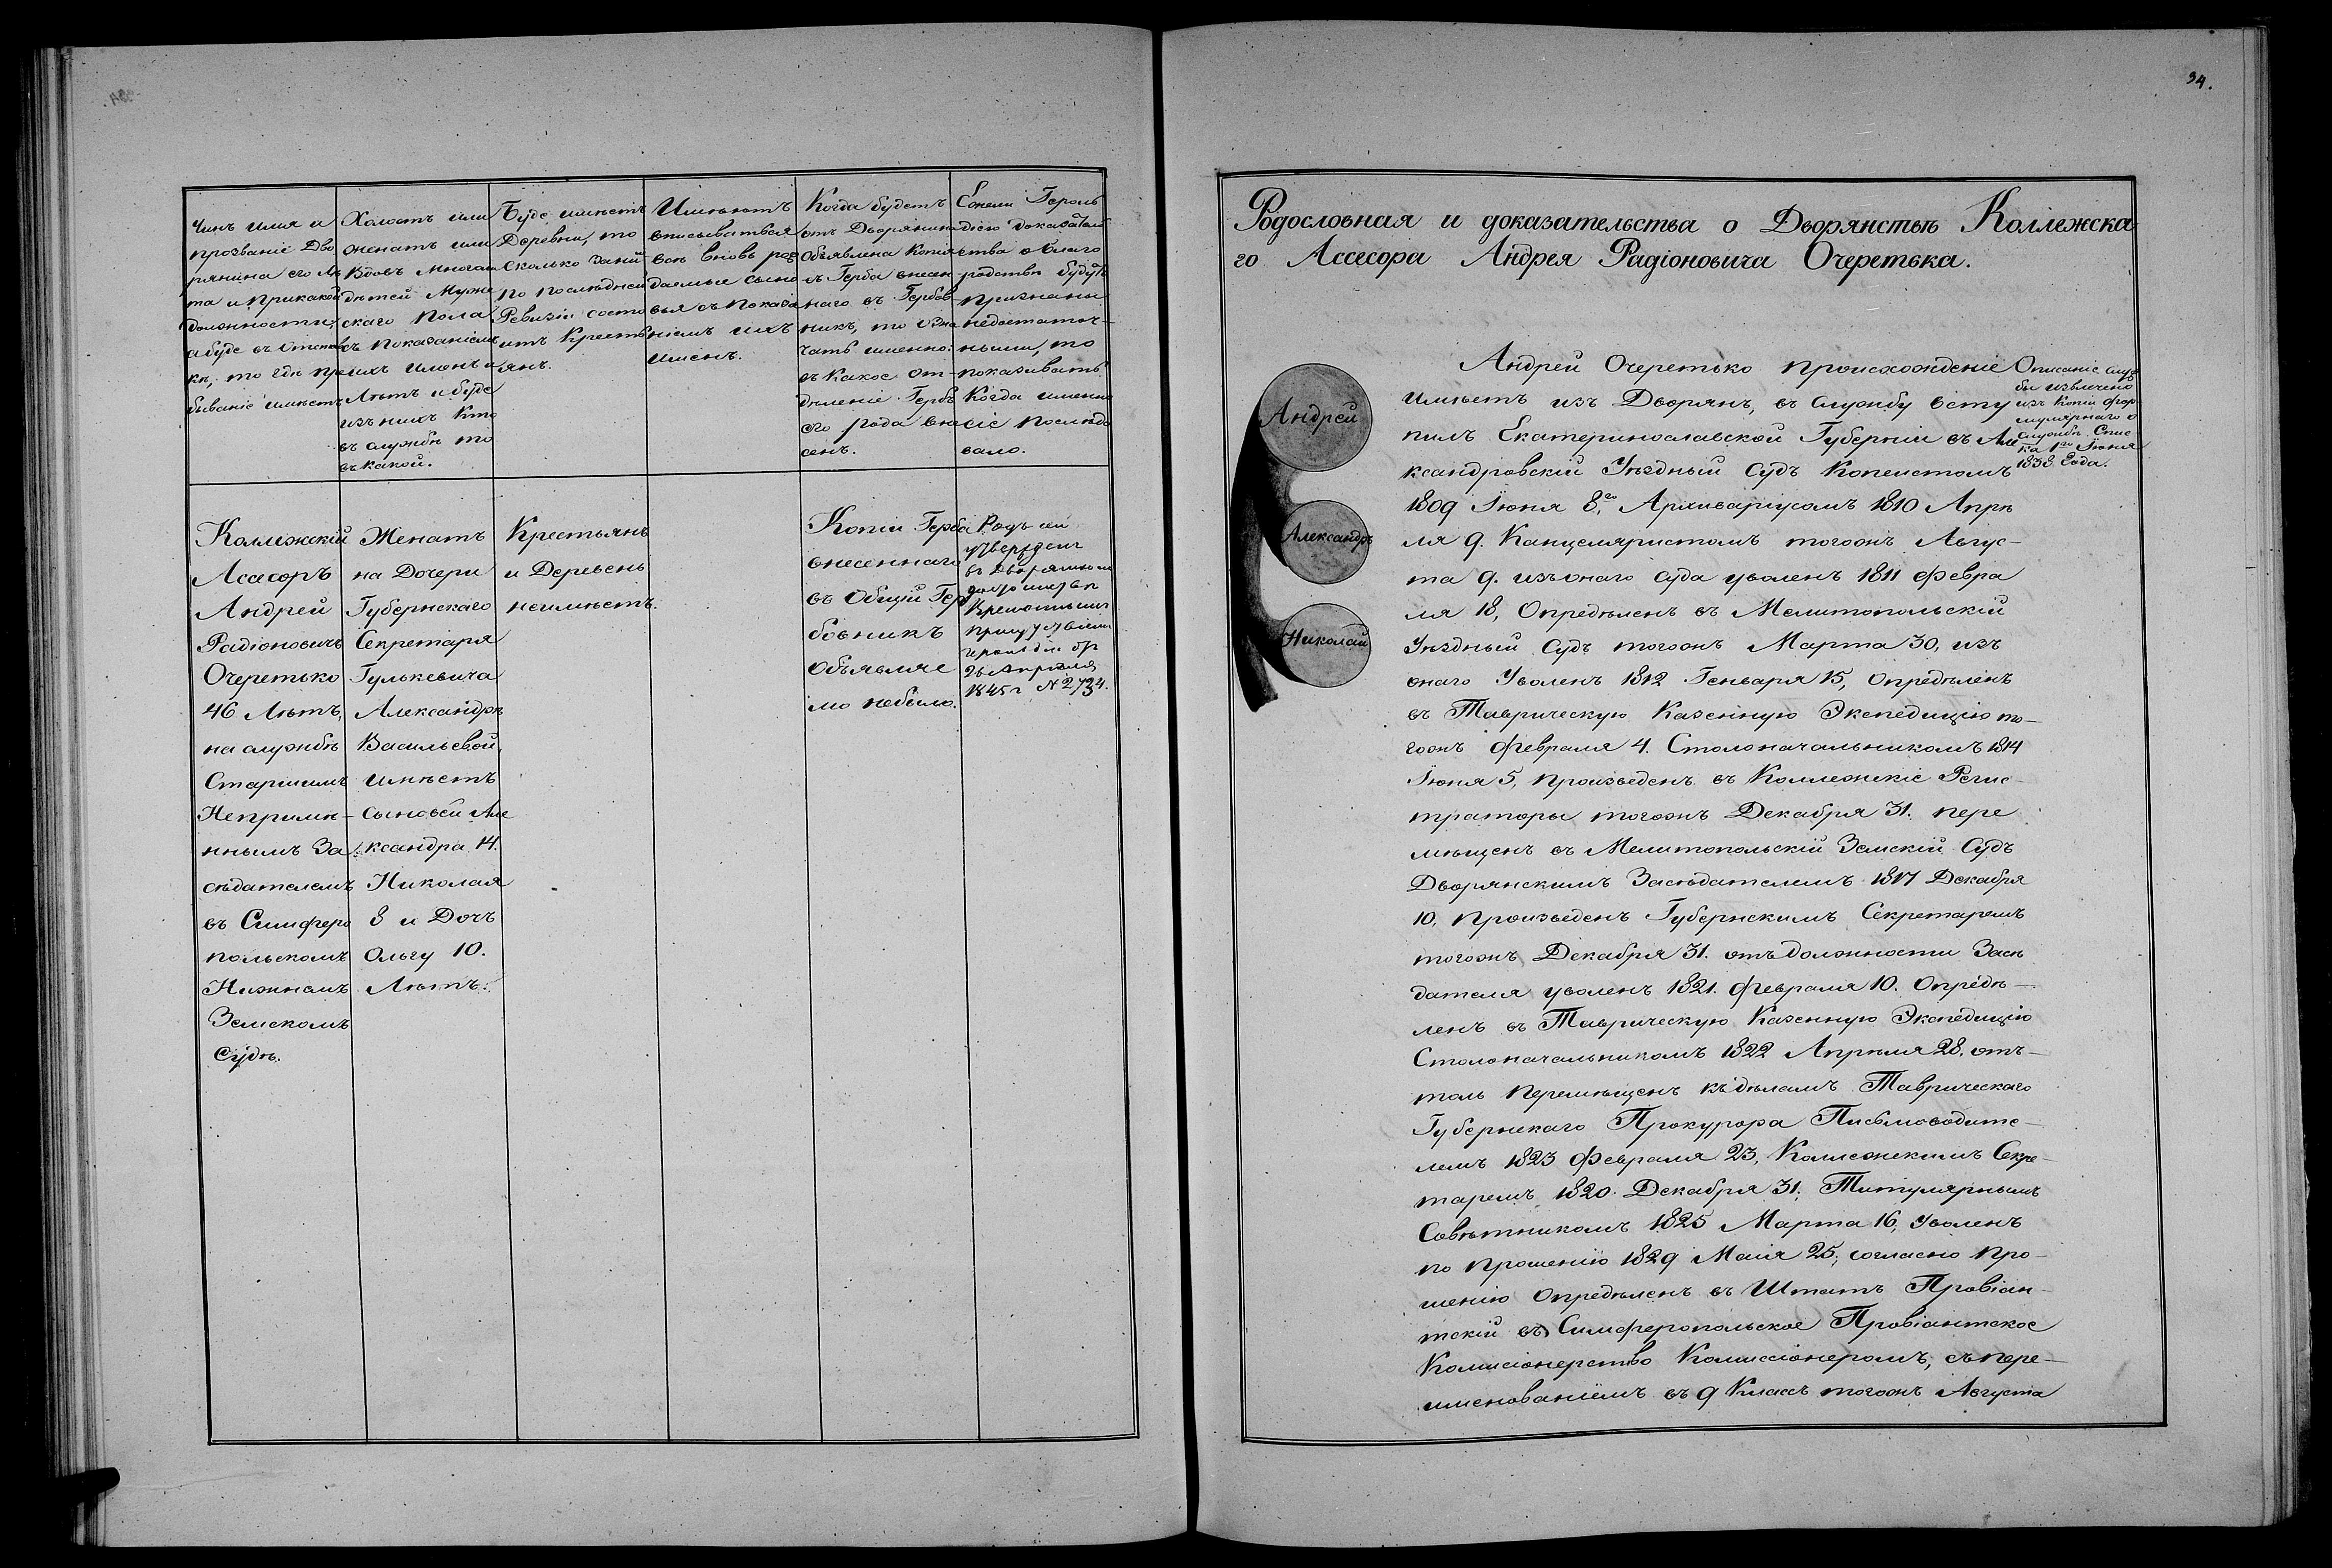 Чинъ имя и
прозваніе Дво
рянина его лѣ
та и при какой
должности,
а буде въ отстав
кѣ, то гдѣ пре
бываніе имѣетъ
Холостъ или
женатъ или
Вдовъ много ли
дѣтей Муже
скаго пола
съ показаніемъ
ихъ именъ и
Лѣтъ и буде
изъ нихъ кто
въ службѣ то
въ какой.
Буде имѣетъ
Деревни, то
сколько за ни
по послѣдней
Ревизіи состо
итъ Кресть
янъ.
Имѣютъ
вписыватвся
всѣ вновь раж
даемые сыно
вья съ показа
ніемъ ихъ
именъ.
Когда будетъ
отъ Дворянина
Объявлена Копія
съ Герба внесен
наго въ Гербов
никъ, то озна
чать именно:
въ какое от-
дѣленіе Гербъ
его рода вне
сенъ.
Ежели Героль
дією доказатель
ства о благо
родствѣ будутъ
признаны
недостаточ-
ными, то
показывать
Когда именно
сіе послѣдо
вало.
Коллежскій
Асесоръ
Андрей
Радіоновичъ
Очеретько
46 Лѣтъ,
на службѣ
Старшимъ
Непремѣ-
ннымъ За
сѣдателемъ
въ Симферо
польскомъ
Нижнемъ
Земскомъ
Судѣ.
Женатъ
на Дочери
Губернскаго
Секретаря
Гулькевича
Александрѣ
Васильевой,
имѣетъ
сыновей Але
ксандра 14.
Николая
8 и Дочь
Ольгу 10.
Лѣтъ.
Крестьянъ
и Деревень
неимѣетъ.
Копіи Герба
внесеннаго
въ Общій Гер
бовникъ
Объявляе
мо небыло.
Родъ сей
утвержденъ
въ Дворянском
достоинствѣ
Временнымъ
присутствіем
Герольдіи
26 Апрѣля
1845 г № 2734.
94.
Родословная и доказательства о Дворянствѣ Коллежска
го Ассесора Андрея Радіоновича Очеретька.
Андрей
Александръ
Николай
Андрей Очеретько происхожденіе
имѣетъ изъ Дворянъ, въ службу всту
пилъ Екатеринославской Губерніи въ Але
ксандровскій Уѣздный Судъ Копеистомъ
1809 Іюня 8.го Архиваріусомъ 1810 Апрѣ
ля 9. Канцеляристомъ тогожъ Авгус-
та 9. изъ онаго Суда уволенъ 1811 Февра
ля 18, Опредѣленъ въ Мелитопольскій
Уѣздный Судъ тогожъ Марта 30, изъ
онаго Уволенъ 1812 Генваря 15, Опредѣленъ
въ Таврическую Казенную Экспедицію то-
гожъ Февраля 4. Столоначальникомъ 1814
Іюня 5, Произведенъ въ Коллежскіе Регис-
траторы тогожъ Декабря 31. пере
мѣщенъ въ Мелитопольскій Земскій Судъ
Дворянскимъ Засѣдателемъ 1817 Декабря
10, Произведенъ Губернскимъ Секретаремъ
тогожъ Декабря 31. отъ должности Засѣ
дателя уволенъ 1821. Февраля 10. Опредѣ-
ленъ въ Таврическую Казенную Экспедицію
Столоначальникомъ 1822 Апрѣля 28, отъ-
толь Перемѣщенъ къ дѣламъ Таврическаго
Губернскаго Прокурора Письмоводите-
лемъ 1823 Февраля 23, Коллежскимъ Секре-
таремъ 1820 Декабря 31, Титулярнымъ
Совѣтникомъ 1825 Марта 16, Уволенъ
по прошенію 1829 Маія 25, согласно про-
шенію Опредѣленъ въ Штатъ Провіан-
тскій въ Симферопольское Провіантское
Комисіонерство Комиссіонеромъ, съ пере-
именованіемъ въ 9 Классъ тогожъ Августа
Описаніе служ
бы извлечено
изъ копіи фор
мулярнаго о
службѣ Спис
ка 1го Іюня
1838 Года.